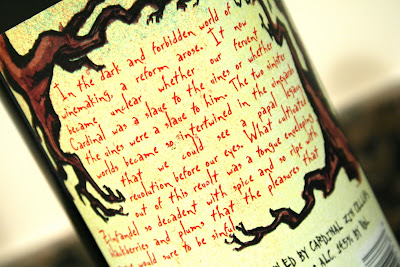 In the dark and forbidden world of
winemaking, a reform arose. It now
became unclear whether our fervent
Cardinal was a slave to the vines or whether
the vines were a slave to him. The two sinister
worlds became so intertwined in the vineyards
that we could see a papal legion
revolution before our eyes. What cultivated
out of this revolt was a tongue enveloping
Zinfandel so decadent with spice and so ripe with
blackberries and plums that the pleasure that
would sure to be sinful
LED BY CARDINAL ZIN CELLARS
ALC. 14.5% BY VOL